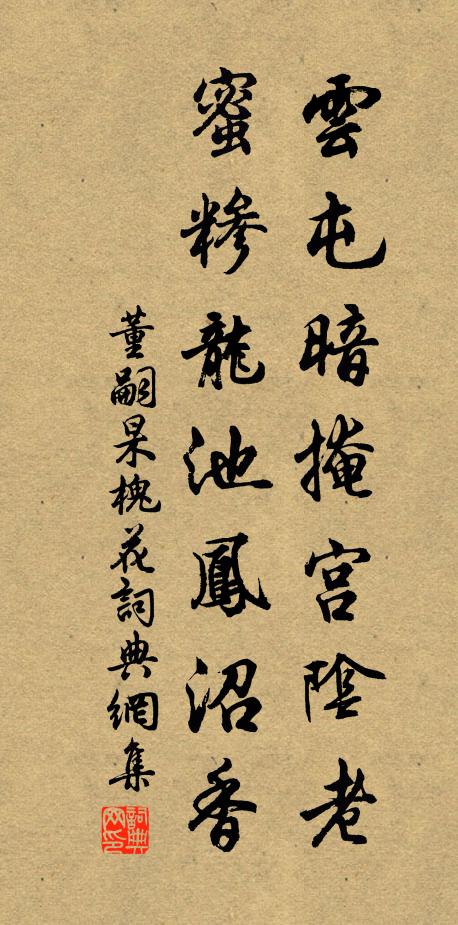 雲屯暗掩宮陰老
蜜糝龍池鳳沼香
董嗣杲槐花詞典網集
詞典网印